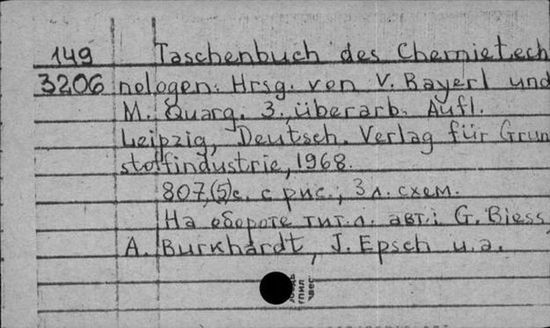 149 Taschenbuch des Chemietech
3206 nologen. Hrsg. von V. Bayerl und
M. Quarg. 3., überarb. Aufl.
Leipzig, Deutsch. Verlag für Grun
stoffindustrie, 1968.
807,(5)с. с рис.; 3 л. схем.
На обороте тит. л. авт.: G. Biess,
A. Burkhardt, J. Epsch u.a.